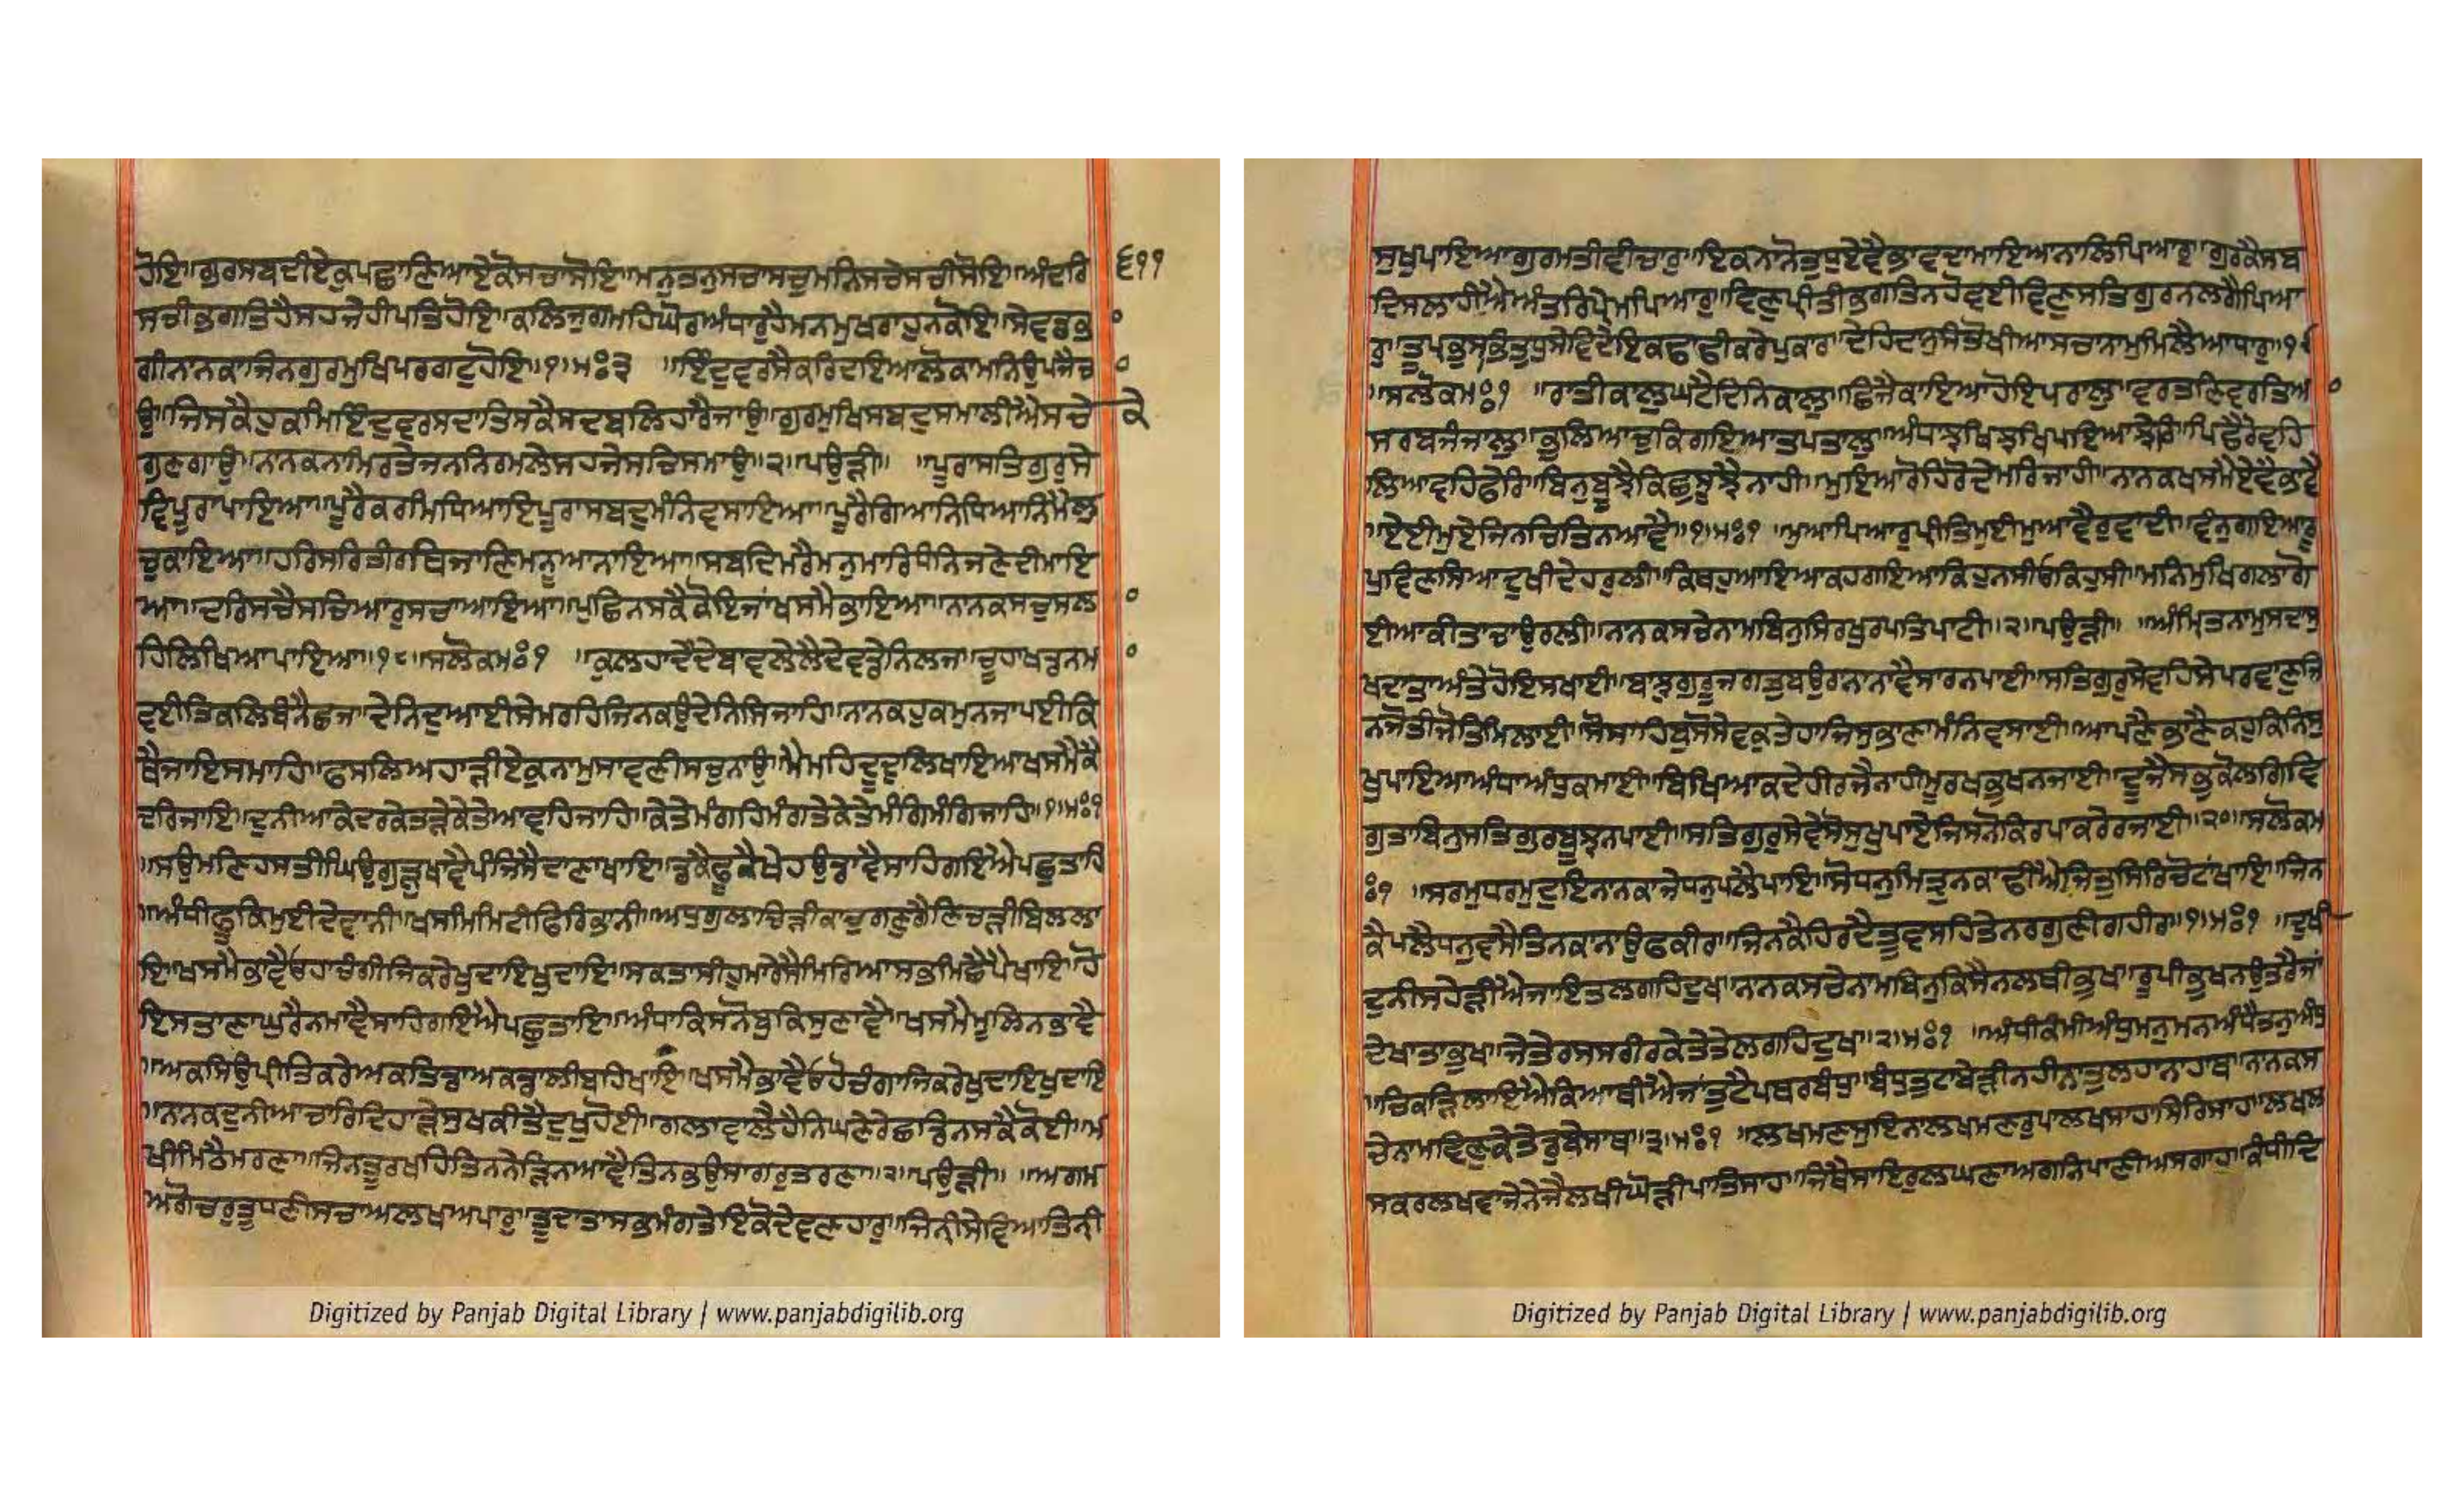 ਹੋਇ॥ਗੁਰਸਬਦੀਏਕੁਪਛਾਣਿਆਏਕੋਸਚਾਸੋਇ॥ਮਨੁਤਨੁਸਚਾਸਚੁਮਨਿਸਚੇਸਚੀਸੋਇ॥ਅੰਦਰਿ
੬੧੧
ਸਚੀਭਗਤਿਹੈਸਹਜੇਹੀਪਤਿਹੋਇ॥ਕਲਿਜੁਗਮਹਿਘੋਰਅੰਧਾਰੁਹੈਮਨਮੁਖਰਾਹੁਨਕੋਇ॥ਸੇਵਡਭ
ਗੀਨਾਨਕਾਜਿਨਗੁਰਮੁਖਿਪਰਗਟੁਹੋਇ॥੧॥ਮਃ੩ ॥ਇੰਦੁਵਰਸੈਕਰਿਦਇਆਲੋਕਾਮਨਿਉਪਜੈਚ
ਉ॥ਜਿਸਕੈਹੁਕਮਿਇੰਦੁਵਰਸਦਾਤਿਸਕੈਸਦਬਲਿਹਾਰੈਜਾਉ॥ਗੁਰਮੁਖਿਸਬਦੁਸਮਾਲੀਐਸਚੇ
ਕੇ
ਗੁਣਗਾਉ॥ਨਾਨਕਨਾਮਿਰਤੇਜਨਨਿਰਮਲੇਸਹਜੇਸਚਿਸਮਾਉ॥੨॥ਪਉੜੀ॥ ॥ਪੂਰਾਸਤਿਗੁਰੁਸੇ
ਵਿਪੂਰਾਪਾਇਆ॥ਪੂਰੈਕਰਮਿਧਿਆਇਪੂਰਾਸਬਦੁਮੰਨਿਵਸਾਇਆ॥ਪੂਰੈਗਿਆਨਿਧਿਆਨਿਮੈਲੁ
ਚੁਕਾਇਆ॥ਹਰਿਸਰਿਤੀਰਥਿਜਾਣਿਮਨੂਆਨਾਇਆ॥ਸਬਦਿਮਰੈਮਨੁਮਾਰਿਧੰਨਿਜਣੇਦੀਮਾਇ
ਆ॥ਦਰਿਸਚੈਸਚਿਆਰੁਸਚਾਆਇਆ॥ਪੁਛਿਨਸਕੈਕੋਇਜਾਂਖਸਮੈਭਾਇਆ॥ਨਾਨਕਸਚੁਸਲ
ਹਿਲਿਖਿਆਪਾਇਆ॥੧੮॥ਸਲੋਕਮਃ੧ ॥ਕੁਲਹਾਂਦੇਂਦੇਬਾਵਲੇਲੈਂਦੇਵਡੇਨਿਲਜ॥ਚੂਹਾਖਡਨਮ
ਵਈਤਿਕਲਿਬੰਨੈਛਜ॥ਦੇਨਿਦੁਆਈਸੇਮਰਹਿਜਿਨਕਉਦੇਨਿਸਿਜਾਹਿ॥ਨਾਨਕਹੁਕਮੁਨਜਾਪਈਕਿ
ਥੈਜਾਇਸਮਾਹਿ॥ਫਸਲਿਅਹਾੜੀਏਕੁਨਾਮੁਸਾਵਣੀਸਚੁਨਾਉ॥ਮੈਮਹਿਦੂਦੁਲਿਖਾਇਆਖਸਮੈਕੈ
ਦਰਿਜਾਇ॥ਦੁਨੀਆਕੇਦਰਕੇਤੜੇਕੇਤੇਆਵਹਿਜਾਹਿ॥ਕੇਤੇਮੰਗਹਿਮੰਗਤੇਕੇਤੇਮੰਗਿਮੰਗਿਜਾਹਿ॥੧॥ਮਃ੧
॥ਸਉਮਣਿਹਸਤੀਘਿਉਗੁੜੁਖਾਵੈਪੰਜਿਸੈਦਾਣਾਖਾਇ॥ਡਕੈਫੂਕੈਖੇਹਉਡਾਵੈਸਾਹਿਗਇਐਪਛੁਤਾਹਿ
॥ਅੰਧੀਫੂਕਿਮੁਈਦੇਵਾਨੀ॥ਖਸਮਿਮਿਟੀਫਿਰਿਭਾਨੀ॥ਅਧੁਗੁਲਾਚਿੜੀਕਾਚੁਗਣੁਗੈਣਿਚੜੀਬਿਲਲਾ
ਇ॥ਖਸਮੈਭਾਵੈਓਹਾਚੰਗੀਜਿਕਰੇਖੁਦਾਇਖੁਦਾਇ॥ਸਕਤਾਸੀਹੁਮਾਰੇਸੈਮਿਰਿਆਸਭਮਿਛੈਪੈਖਾਇ॥ਹੋ
ਇਸਤਾਣਾਘੁਰੈਨਮਾਵੈਸਾਹਿਗਇਐਪਛੁਤਾਇ॥ਅੰਧਾਕਿਸਨੋਬੁਕਿਸੁਣਾਵੈ॥ਖਸਮੈਮੂਲਿਨਭਾਵੈ
॥ਅਕਸਿਉਪ੍ਰੀਤਿਕਰੇਅਕਤਿਡਾਅਕਡਾਲੀਬਹਿਖਾਇ॥ਖਸਮੈਭਾਵੈਓਹੋਚੰਗਾਜਿਕਰੇਖੁਦਾਇਖੁਦਾਇ
॥ਨਨਕਦੁਨੀਆਚਾਰਿਦਿਹਾੜੇਸੁਖਕੀਤੈਦੁਖੁਹੋਈ॥ਗਲਾਵਾਲੇਹੈਨਿਘਣੇਰੇਛਡਿਨਸਕੈਕੋਈ॥ਮ
ਖੀਮਿਠੈਮਰਣਾ॥ਜਿਨਤੂਰਖਹਿਤਿਨਨੇੜਿਨਆਵੈਤਿਨਭਉਸਾਗਰੁਤਰਣਾ॥੨॥ਪਉੜੀ॥ ॥ਅਗਮ
ਅਗੋਚਰੁਤੂਧਣੀਸਚਾਅਲਖਅਪਾਰੁ॥ਤੂਦਾਤਾਸਭਮੰਗਤੇਇਕੋਦੇਵਣਹਾਰੁ॥ਜਿਨੀਸੇਵਿਆਤਿਨੀ
Digitized by Panjab Digital Library | www.panjabdigilib.org
ਸੁਖੁਪਾਇਆਗੁਰਮਤੀਵੀਚਾਰੁ॥ਇਕਨਾਨੋਤੁਧੁਏਵੈਭਾਵਦਾਮਾਇਆਨਾਲਿਪਿਆਰੁ॥ਗੁਰਕੈਸਬ
ਦਿਸਲਾਹੀਐਅੰਤਰਿਪ੍ਰੇਮਪਿਆਰੁ॥ਵਿਣੁਪ੍ਰੀਤੀਭਗਤਿਨਹੋਵਈਵਿਣੁਸਤਿਗੁਰਨਲਗੈਪਿਆ
ਰੁ॥ਤੂਪ੍ਰਭੁਸਭਿਤੁਧੁਸੇਵਦੇਇਕਢਾਢੀਕਰੇਪੁਕਾਰ॥ਦੇਹਿਦਾਨੁਸੰਤੋਖੀਆਸਚਾਨਾਮੁਮਿਲੈਆਧਾਰੁ॥੧੯
॥ਸਲੋਕਮਃ੧ ॥ਰਾਤੀਕਾਲੁਘਟੈਦਿਨਿਕਾਲੁ॥ਛਿਜੈਕਾਇਆਹੋਇਪਰਾਲੁ॥ਵਰਤਣਿਵਰਤਿਆ
ਸਰਬਜੰਜਾਲੁ॥ਭੁਲਿਆਚੁਕਿਗਇਆਤਪਤਾਲੁ॥ਅੰਧਾਝਖਿਝਖਿਪਇਆਝੇਰਿ॥ਪਿਛੈਰੋਵਹਿ
ਲਿਆਵਹਿਫੇਰਿ॥ਬਿਨੁਬੂਝੈਕਿਛੁਸੂਝੈਨਾਹੀ॥ਮੁਇਆਰੋਹਿਰੋਦੇਮਰਿਜਾਹੀ॥ਨਾਨਕਖਸਮੈਏਵੈਭਵੈ
॥ਏਈਮੁਏਜਿਨਚਿਤਿਨਆਵੈ॥੧॥ਮਃ੧ ॥ਮੁਆਪਿਆਰੁਪ੍ਰੀਤਿਮੁਈਮੁਆਵੈਰੁਵਾਦੀ॥ਵੰਨੁਗਇਆਰੂ
ਪੁਵਿਣਸਿਆਦੁਖੀਦੇਹਰੁਲੀ॥ਕਿਥਹੁਆਇਆਕਹਗਇਆਕਿਹੁਨਸੀਓਕਿਹੁਸੀ॥ਮਨਿਮੁਖਿਗਲਾਗੋ
ਈਆਕੀਤਾਚਾਉਰਲੀ॥ਨਾਨਕਸਚੇਨਾਮਬਿਨੁਸਿਰਖੁਰਪਤਿਪਾਟੀ॥੨॥ਪਉੜੀ॥ ॥ਅੰਮ੍ਰਿਤਨਾਮੁਸਦਾਸੁ
ਖਦਾਤਾਅੰਤੇਹੋਇਸਖਾਈ॥ਬਾਝੁਗੁਰੂਜਗਤੁਬਉਰਾਨਾਵੈਸਾਰਨਪਾਈ॥ਸਤਿਗੁਰੁਸੇਵਹਿਸੇਪਰਵਾਣੁਜਿ
ਨਜੋਤੀਜੋਤਿਮਿਲਾਈ॥ਸੋਸਾਹਿਬੁਸੋਸੇਵਕੁਤੇਹਾਜਿਸੁਭਾਣਾਮੰਨਿਵਸਾਈ॥ਆਪਣੈਭਾਣੈਕਹੁਕਿਨਿਸੁ
ਖੁਪਾਇਆਅੰਧਾਅੰਧੁਕਮਾਈ॥ਬਿਖਿਆਕਦੇਹੀਰਜੈਨਾਹੀਮੂਰਖਭੁਖਨਜਾਈ॥ਦੂਜੈਸਭੁਕੋਲਗਿਵਿ
ਗੁਤਾਬਿਨੁਸਤਿਗੁਰਬੂਝਨਪਾਈ॥ਸਤਿਗੁਰੁਸੇਵੇਸੋਸੁਖੁਪਾਏਜਿਸਨੋਕਿਰਪਾਕਰੇਰਜਾਈ॥੨੦॥ਸਲੋਕਮ
ਃ੧ ॥ਸਰਮੁਧਰਮੁਦੁਇਨਾਨਕਾਜੇਧਨੁਪਲੈਪਾਇ॥ਸੋਧਨੁਮਿਤ੍ਰੁਨਕਾਢੀਐਜਿਤੁਸਿਰਿਚੋਟਾਂਖਾਇ॥ਜਿਨ
ਕੈਪਲੈਧਨੁਵਸੈਤਿਨਕਾਨਾਉਫਕੀਰ॥ਜਿਨਕੈਹਿਰਦੈਤੂਵਸਹਿਤੇਨਰਗੁਣੀਗਹੀਰ॥੧॥ਮਃ੧ ॥ਦੁਖੀ
ਦੁਨੀਸਹੇੜੀਐਜਾਇਤਲਗਹਿਦੁਖ॥ਨਨਕਸਚੇਨਾਮਬਿਨੁਕਿਸੈਨਲਥੀਭੁਖ॥ਰੂਪੀਭੁਖਨਉਤਰੈਜਾਂ
ਦੇਖਾਤਾਭੁਖ॥ਜੇਤੇਰਸਸਰੀਰਕੇਤੇਤੇਲਗਹਿਦੁਖ॥੨॥ਮਃ੧ ॥ਅੰਧੀਕੰਮੀਅੰਧੁਮਨੁਮਨਅੰਧੈਤਨੁਅੰਧੁ
॥ਚਿਕੜਿਲਾਇਐਕਿਆਥੀਐਜਾਂਤੁਟੈਪਥਰਬੰਧੁ॥ਬੰਧੁਤੁਟਾਬੇੜੀਨਹੀਨਾਤੁਲਹਾਨਾਹਾਥ॥ਨਨਕਸ
ਚੇਨਾਮਵਿਣੁਕੇਤੇਡੁਬੇਸਾਥ॥੩॥ਮਃ੧ ॥ਲਖਮਣਸੁਇਨਾਲਖਮਣਰੁਪਾਲਖਸਾਹਾਸਿਰਿਸਾਹ॥ਲਖਲ
ਸਕਰਲਖਵਾਜੇਨੇਜੇਲਖੀਘੋੜੀਪਾਤਿਸਾਹ॥ਜਿਥੈਸਾਇਰੁਲਘਣਾਅਗਨਿਪਾਣੀਅਸਗਾਹ॥ਕੰਧੀਦਿ
Digitized by Panjab Digital Library | www.panjabdigilib.org